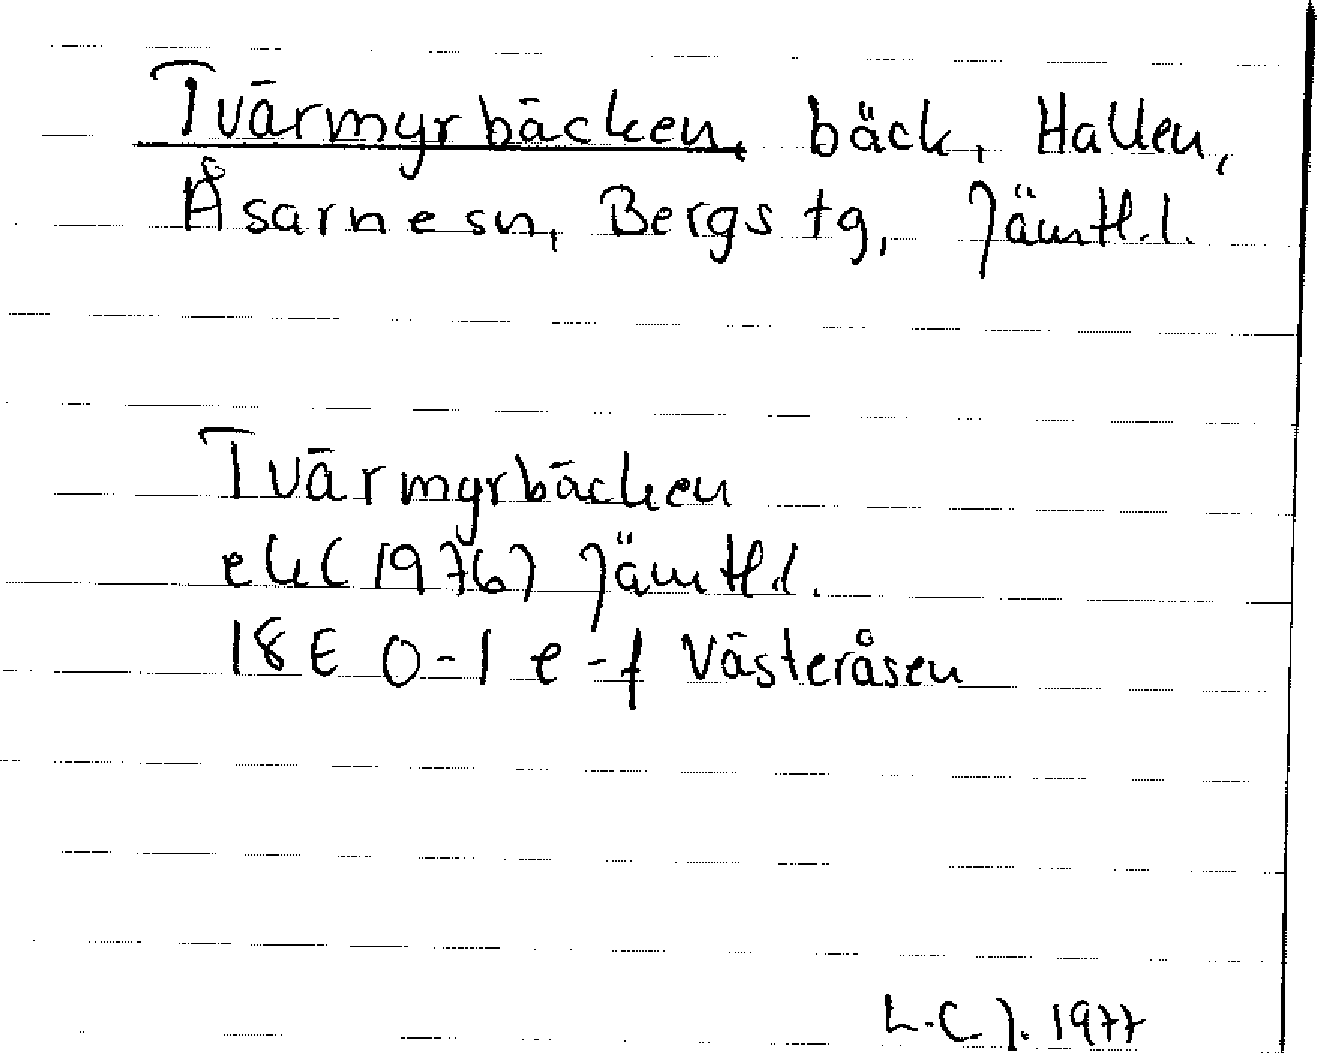 Tvärmyrbäcken, bäck, Hallen,
Åsarne sn, Bergs tg, Jämtl. l.
Tvärmyrbäcken
ek (1976) Jämtl.
18E 0-1 e-f Västeråsen
L.C J. 1977